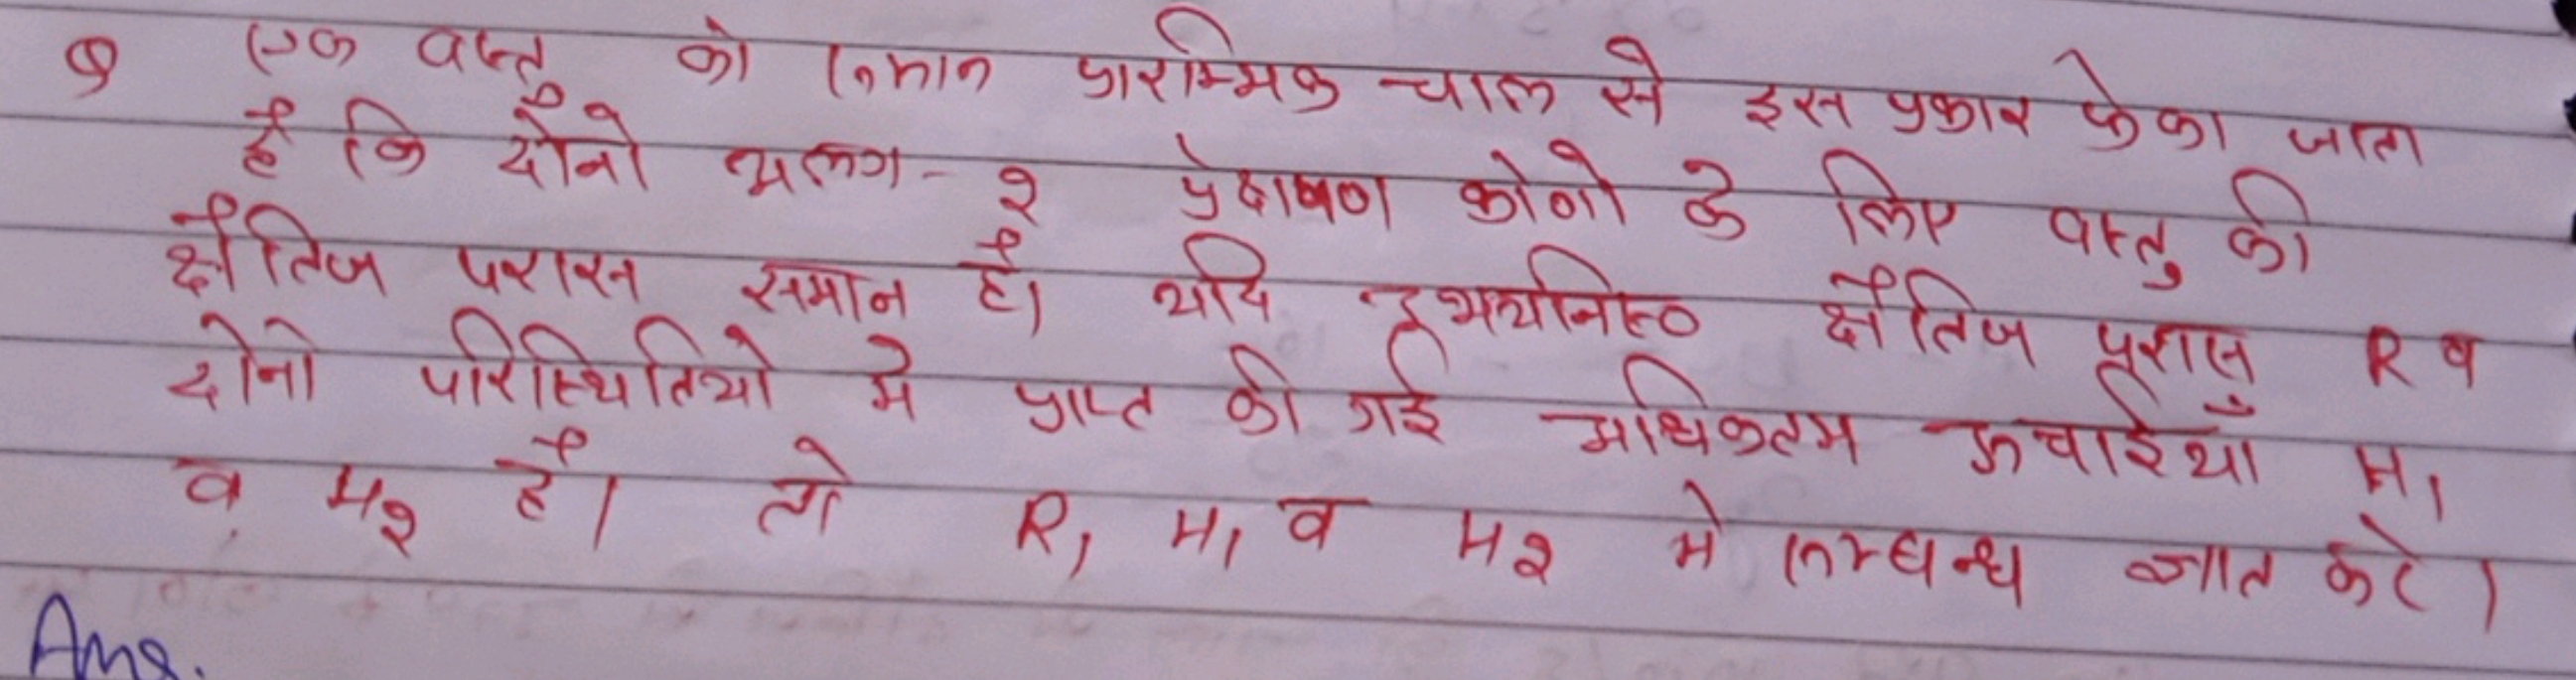 Q एक वस्तु को समान प्रारम्भिक चाल से इस प्रकार फेका जाता
है कि दोनो अलग-२ प्रेक्षपण कोणो के लिए वस्तु की
क्षैतिज परास समान है। यदि क्षैतिज परास R व
दोनो परिस्थितियो मे प्राप्त की गई अधिकतम ऊचाईयाँ H₁
व H₂ है। तो R, H₁ व H₂ मे सम्बन्ध ज्ञात करे।
Ans.